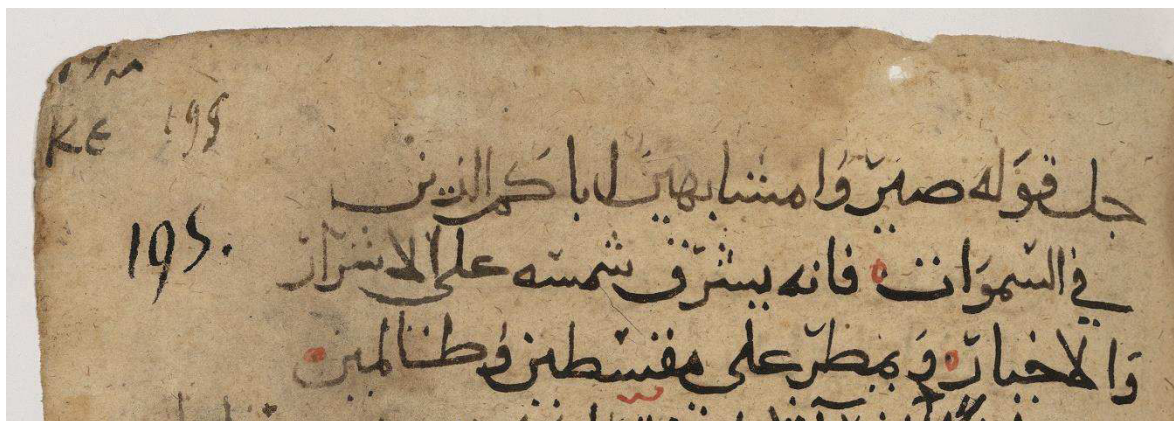 195
195.
جل قوله صيروا مشابهين لاباكم الذي
في السموات فانه يشرق شمسه على الاشرار
والاخيار ويمطر على مقسطين وظالمين